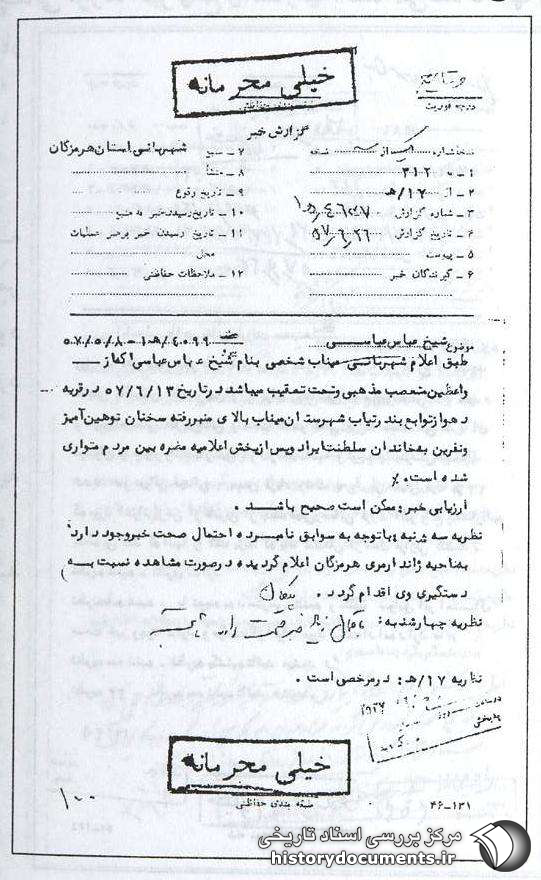 خیلی محرمانه
طبقه بندی حفاظتی
درجه فوریت
گزارش خبر
نسخه شماره از نسخه
۱ - به ۳۱۲
۲ - از ۱۷/ه
۳ - شماره گزارش
۴ - تاریخ گزارش ۵۷/۶/۲۶
۵ - پیوست
۶ - گیرندگان خبر
۷ - منبع شهربانی استان هرمزگان
۸ - منشأ
۹ - تاریخ وقوع
۱۰ - تاریخ رسیدن خبر به منبع
۱۱ - تاریخ رسیدن خبر برهبر عملیات
محل
۱۲ - ملاحظات حفاظتی
موضوع شیخ عباس عباسی
طبق اعلام شهربانی میناب شخصی بنام شیخ عباس عباسی که از
واعظین متعصب مذهبی وتحت تعقیب میباشد در تاریخ ۵۷/۶/۱۳ در قریه
دهواز توابع بندرتیاب شهرستان میناب بالای منبر رفته سخنان توهین آمیز
ونفرین به خاندان سلطنت ایراد وپس از پخش اعلامیه مضره بین مردم متواری
شده است. ٪
ارزیابی خبر: ممکن است صحیح باشد .
نظریه سه شنبه: باتوجه به سوابق نامبرده احتمال صحت خبر وجود دارد
به ناحیه ژاندارمری هرمزگان اعلام گردیده در صورت مشاهده نسبت به
دستگیری وی اقدام گردد .
نظریه چهارشنبه:
نظریه ۱۷/ه: در مرخصی است .
خیلی محرمانه
طبقه بندی حفاظتی
۱۰۰
۴۶-۱۳۱
مرکز بررسی اسناد تاریخی
historydocuments.ir